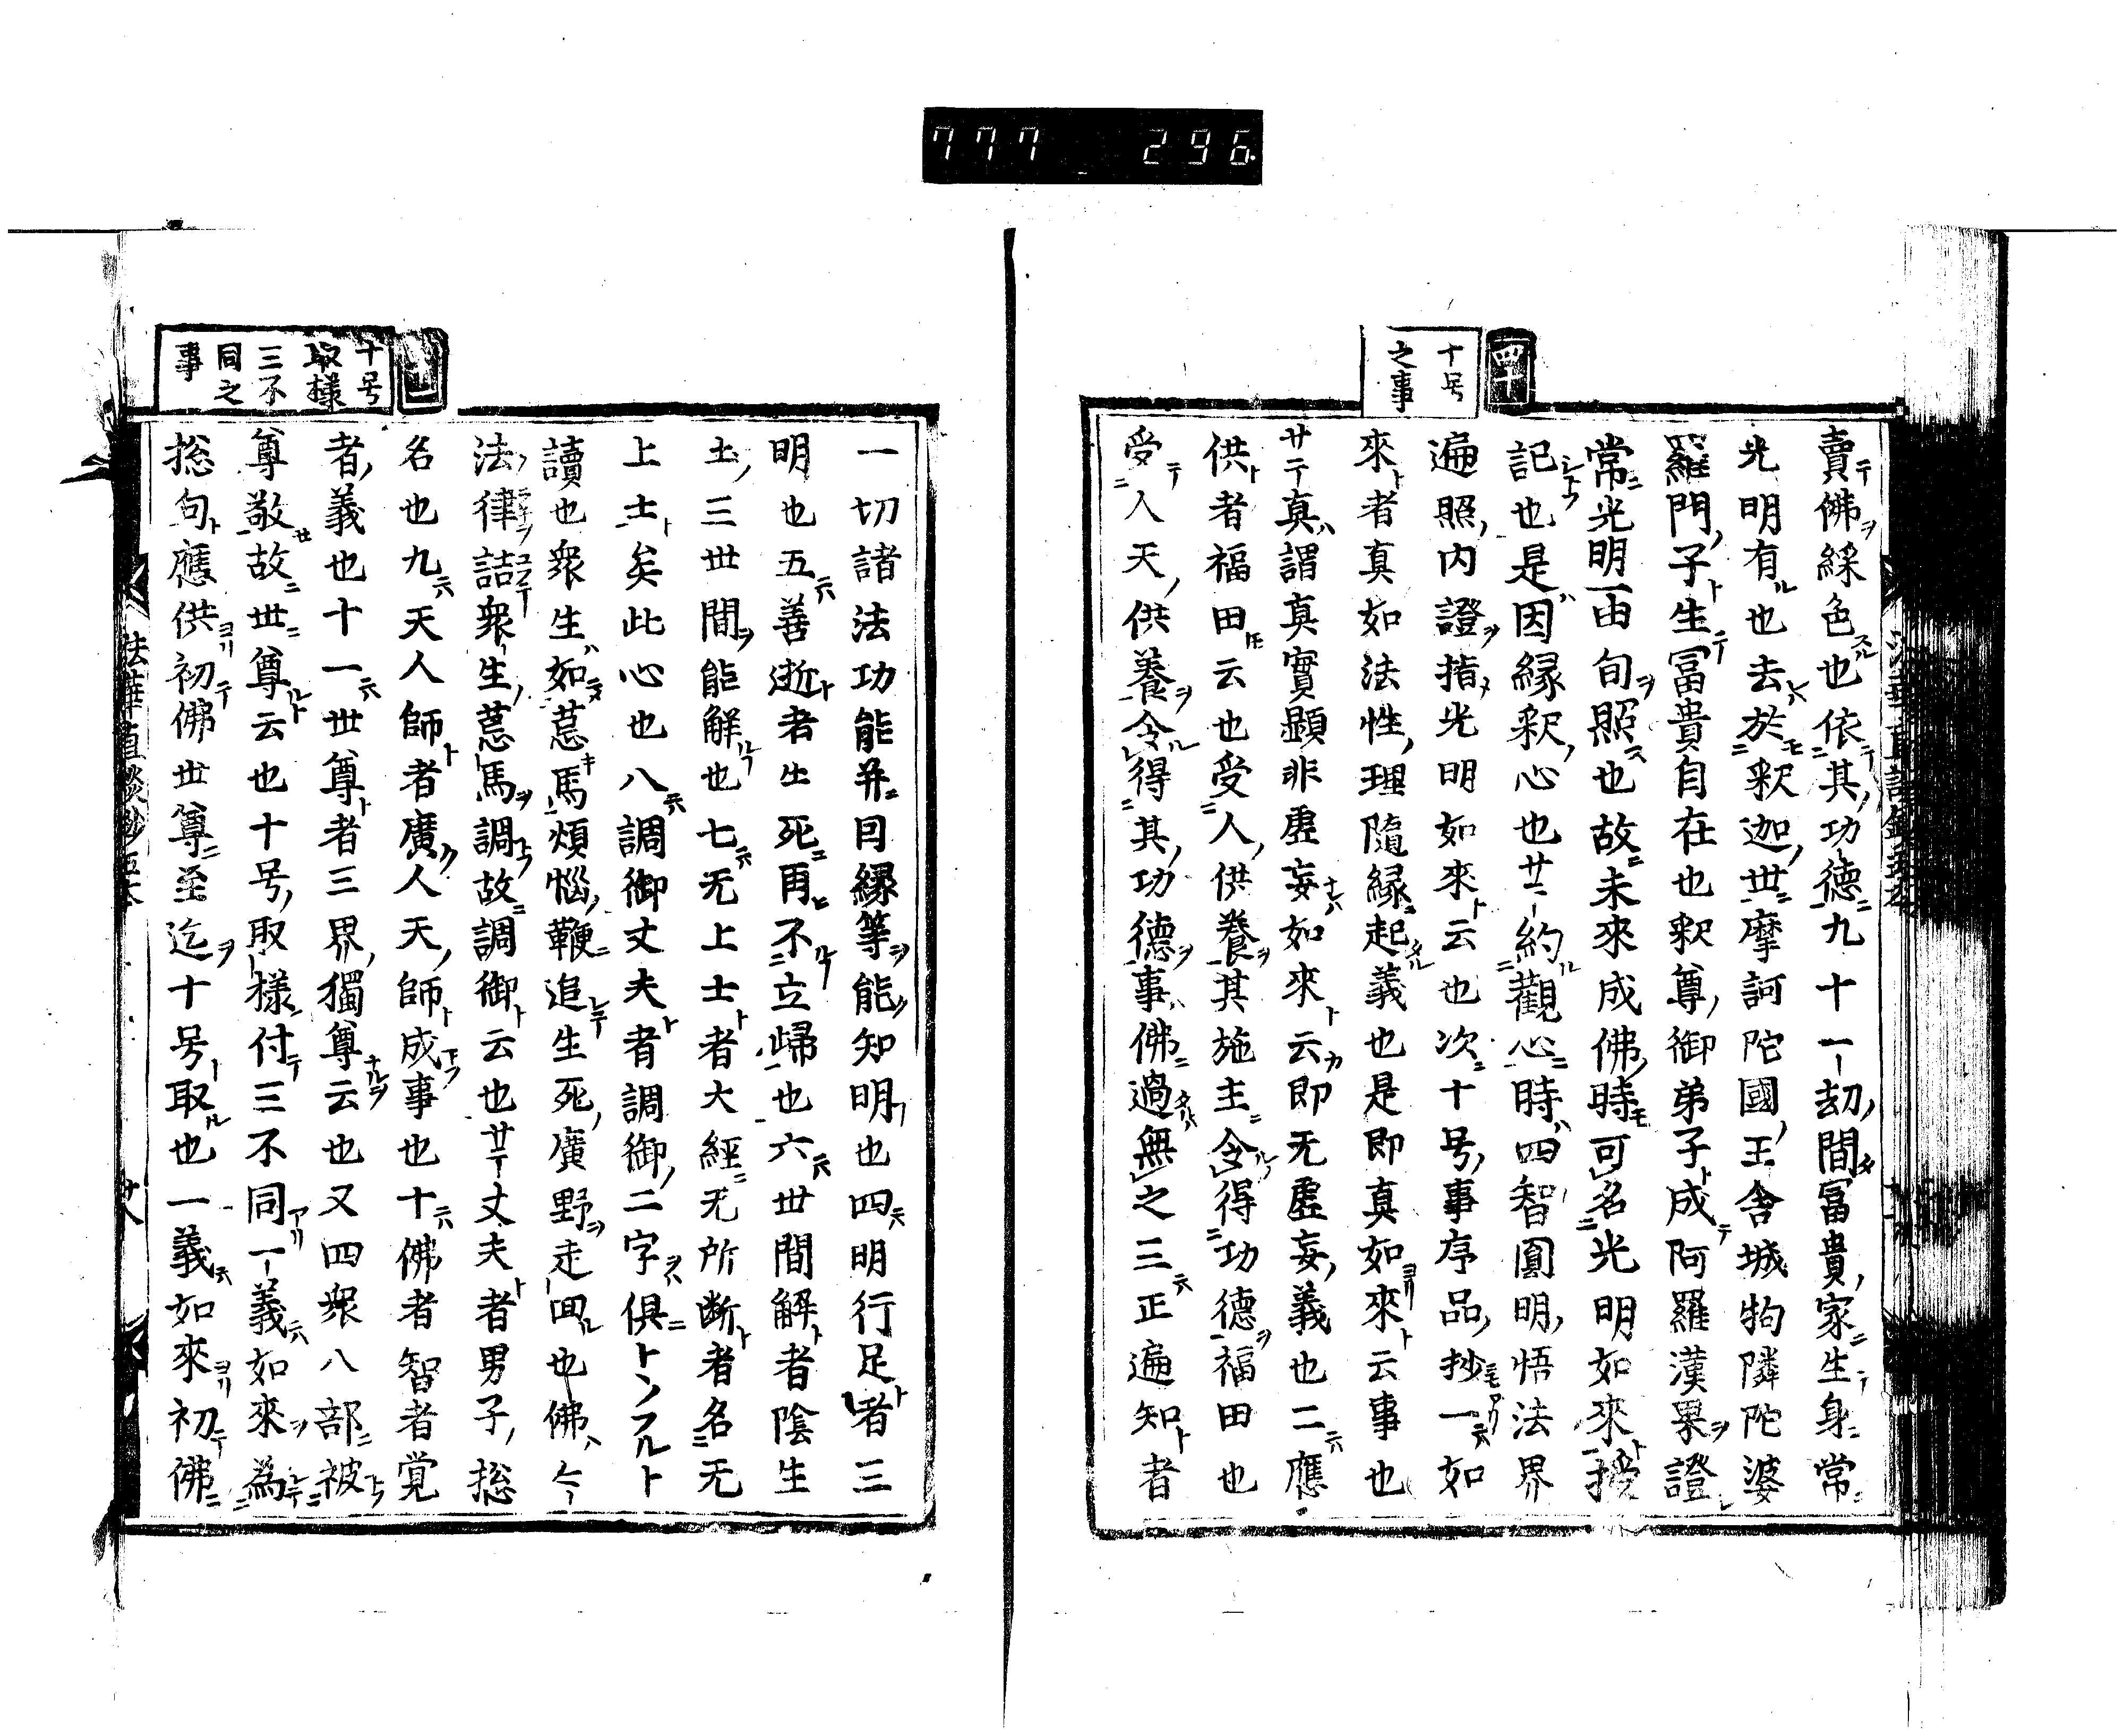 777 296
四十
十号
之事
賣佛綵色也依其功德九十一劫間冨貴家生身常
光明有也去於釈迦世摩訶陀國王舎城㧃隣陀婆
羅門子生冨貴自在也釈尊御弟子成阿羅漢果證
常光明一由旬照也故未來成佛時可名光明如來授
記也是因縁釈心也廿二約觀心時四智圓明悟法界
遍照内證指光明如來云也次十号事序品抄一如
來者真如法性理隨縁起義也是即真如來云事也
廿二真謂真實顕非虚妄如來云即无虚妄義也二應
供者福田云也受人供養其施主令得功德福田也
受人天供養令得其功德事佛過無之三正遍知者
十号
取様
三不
同之
事
一切諸法功能并囙縁等能知明也四明行足者三
明也五善逝者生死再不立歸也六世間解者陰生
土三世間能解也七无上士者大經无所断者名无
上士矣此心也八調御丈夫者調御二字俱トンフルト
讀也衆生如㤙馬煩惱鞭追生死廣野走囬也佛今
法律詰衆生㤙馬調故調御云也廿二丈夫者男子揔
名也九天人師者廣人天師成事也十佛者智者覚
者義也十一世尊者三界獨尊云也又四衆八部被
尊敬故世尊云也十号取様付三不同一義如來為
揔句應供初佛世尊至迄十号取也一義如來初佛
法華直談鈔五本
廿八